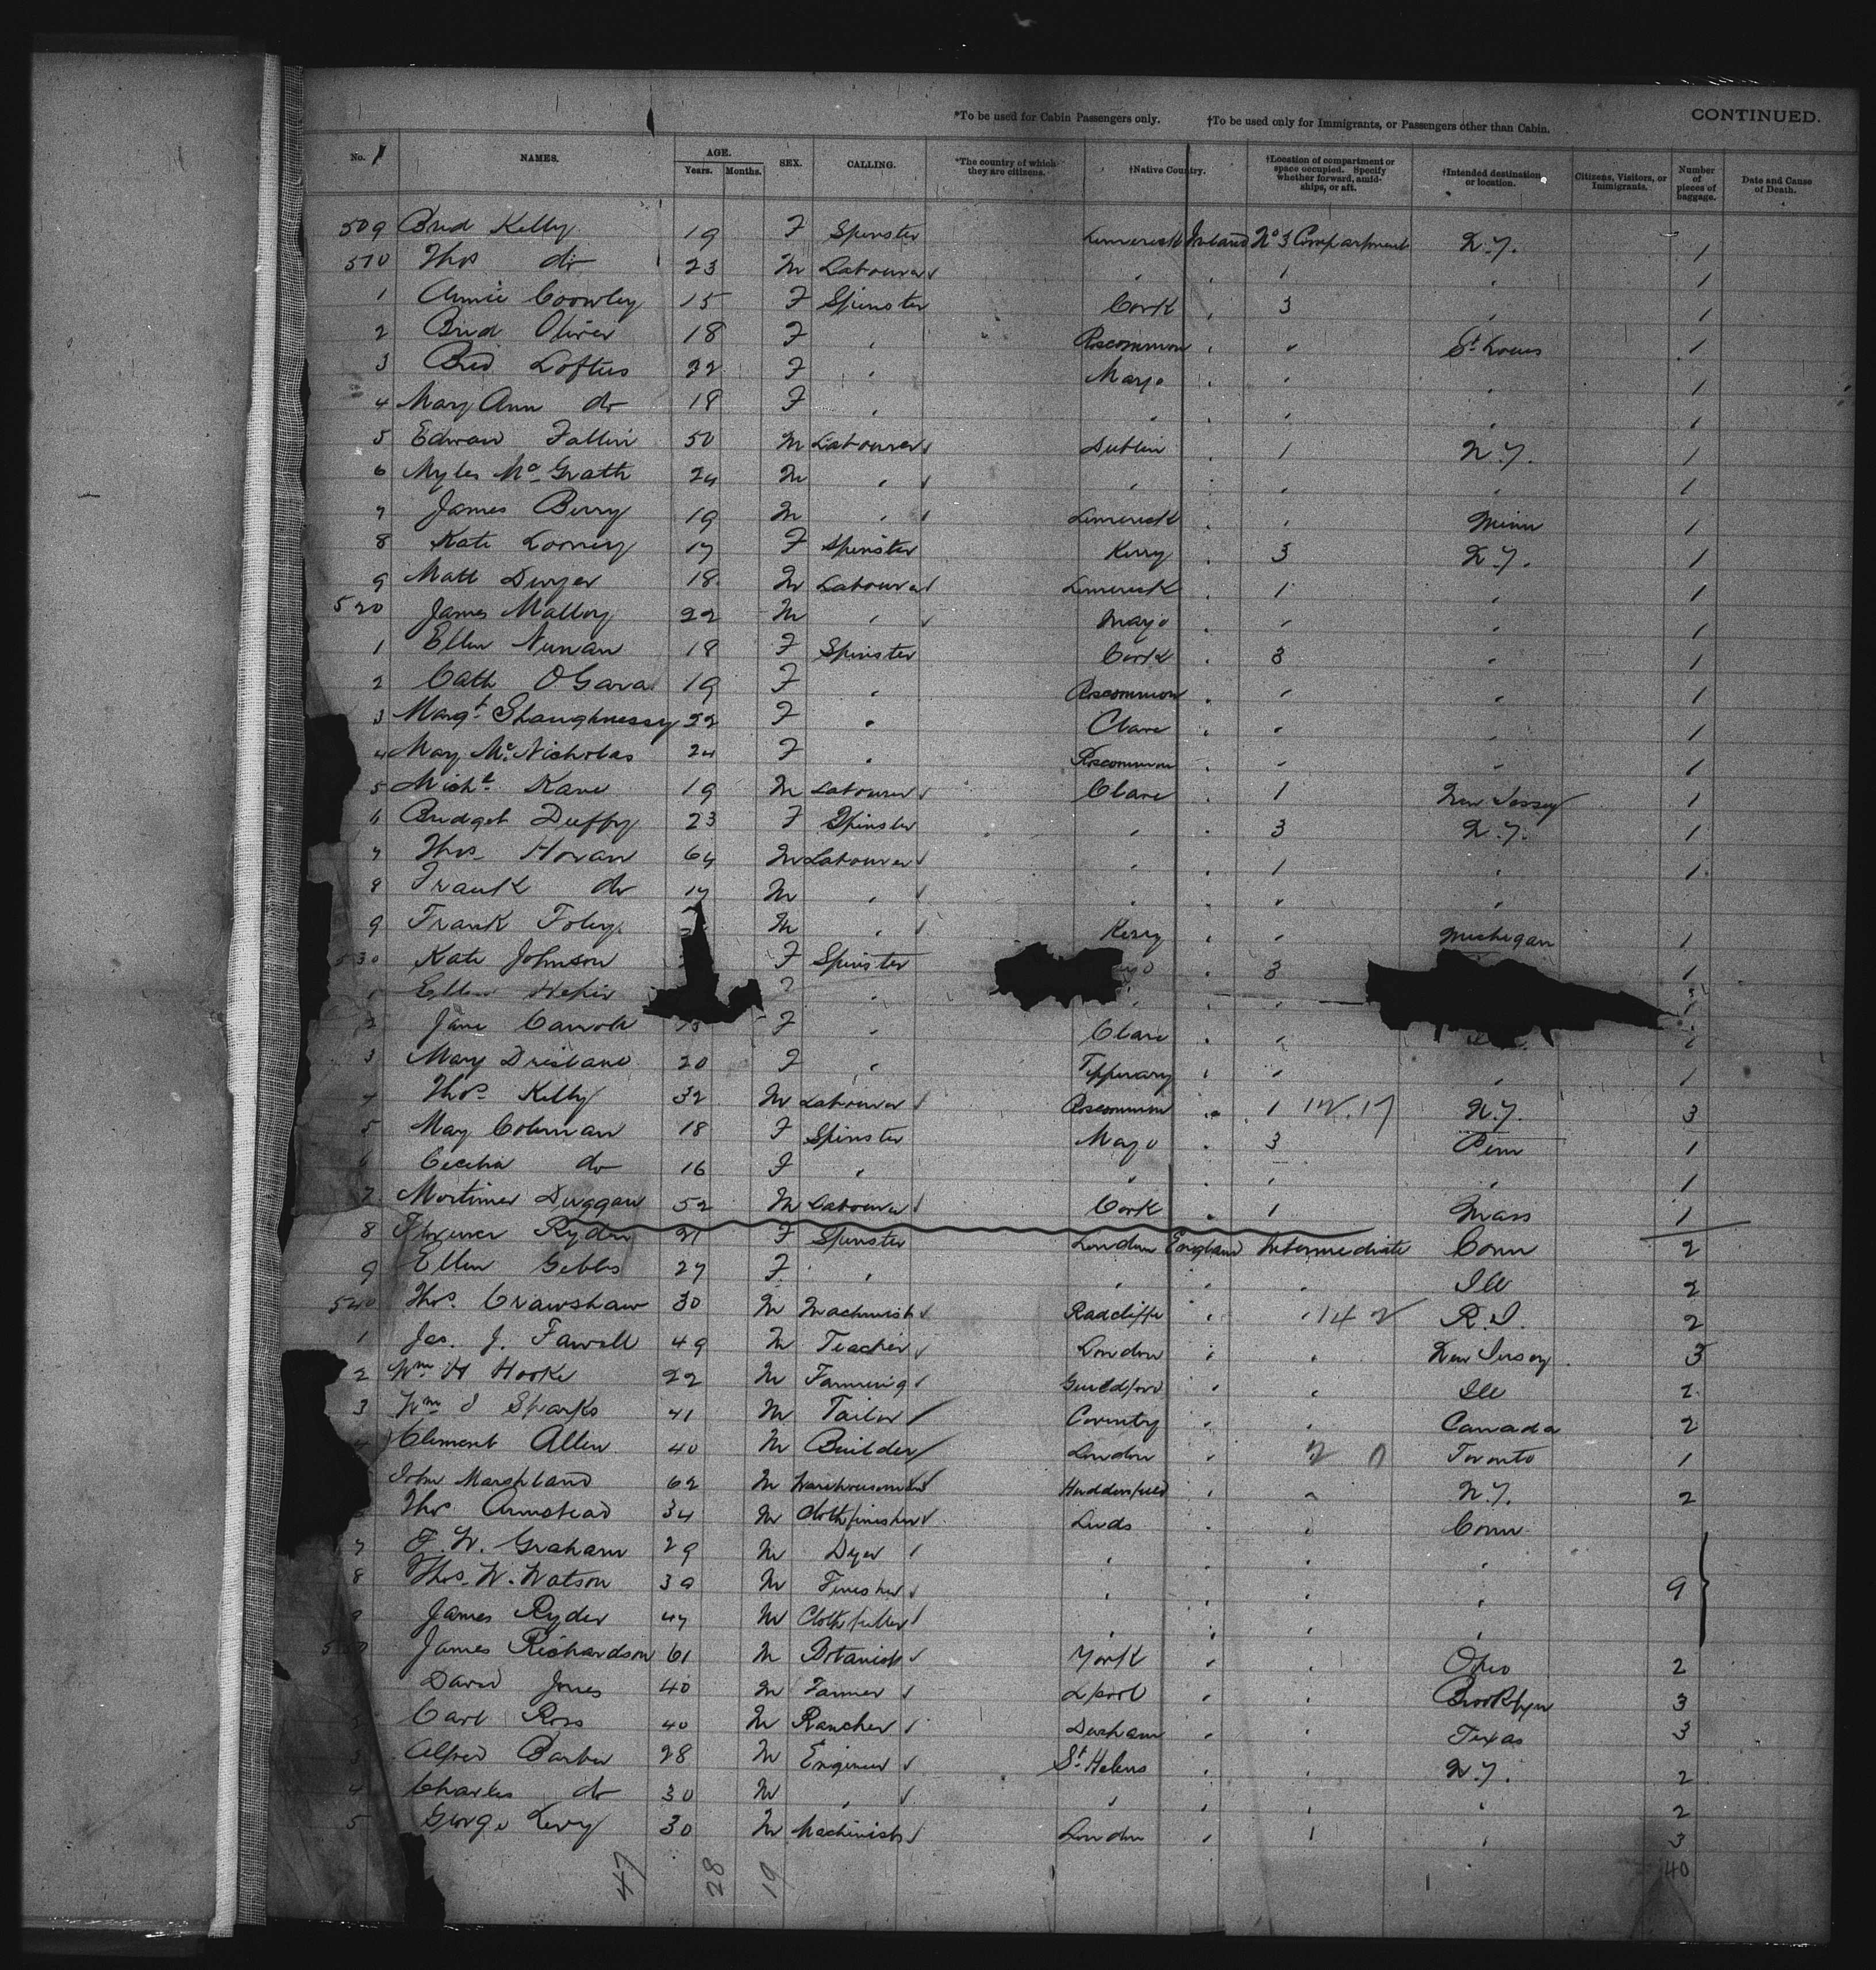 *To be used for Cabin Passengers only. †To be used only for Immigrants, or Passengers other than Cabin. CONTINUED.
No. NAMES. AGE. Years. Months. SEX. CALLING. *The country of which they are citizens. †Native Country. †Location of compartment or space occupied. Specify whether forward, amidships, or aft. †Intended destination or location. Citizens, Visitors, or Immigrants. Number of pieces of baggage. Date and Cause of Death.
509 Brid Kelly 19 F Spinster Limerick Ireland No 3 Compartment N.Y. 1
510 Thos do 23 M Labourer " " 1 " 1
1 Annie Crowley 15 F Spinster Cork " 3 " 1
2 Brid Oliver 18 F " Roscommon " " St Louis 1
3 Brid Loftus 22 F " Mayo " " " 1
4 Mary Ann do 18 F " " " " " 1
5 Edward Fallin 50 M Labourer Dublin " 1 N.Y. 1
6 Myles McGrath 24 M " " " " " 1
7 James Berry 19 M " Limerick " " Minn 1
8 Kate Looney 17 F Spinster Kerry " 3 N.Y. 1
9 Matt Dwyer 18 M Labourer Limerick " 1 " 1
520 James Malloy 22 M " Mayo " " " 1
1 Ellen Nunan 18 F Spinster Cork " 3 " 1
2 Cath O'Gara 19 F " Roscommon " " " 1
3 Margt Shaughnessy 22 F " Clare " " " 1
4 Mary McNicholas 24 F " Roscommon " " " 1
5 Michl Kane 19 M Labourer Clare " 1 New Jersey 1
6 Bridget Duffy 23 F Spinster " " 3 N.Y. 1
7 Thos Horan 64 M Labourer " " 1 " 1
8 Frank do 17 M " " " " "
9 Frank Foley M " Kerry " " Michigan 1
530 Kate Johnson F Spinster " 3 1
1 Ellen " " " 1
2 Jane Carroll F " Clare " "
3 Mary 20 F " Tipperary " " " 1
4 Thos Kelly 32 M Labourer Roscommon " 1 N.Y. 3
5 May Coleman 18 F Spinster Mayo " 3 Penn 1
6 Cecelia do 16 F " " " " " 1
7 Mortimer Duggan 52 M Labourer Cork " 1 Mass 1
8 Florence Ryder 21 F Spinster London England Intermediate Conn 2
9 Ellen Gibbs 27 F " " " " Ill 2
540 Thos. Crawshaw 30 M Machinist Radcliffe " " 142 R.I. 2
1 Jas. J. Fawall 49 M Teacher London " " New Jersey 3
2 Wm H Hooke 22 M Farming Guildford " " Ill 2
3 Wm J Sparks 41 M Tailor Coventry " " Canada 2
4 Clement Allen 40 M Builder London " Toronto 1
John Marshland 62 M Warehouseman Huddersfield " " N.Y. 2
Thos Armstead 34 M Cloth finisher Leeds " " Conn
7 F. W. Graham 29 M Dyer " " " "
8 Thos. W. Watson 39 M Finisher " " " " 9
9 James Ryder 47 M Cloth fuller " " " "
James Richardson 61 M Botanist York " " Ohio 2
David Jones 40 M Farmer L'pool " " Brooklyn 3
2 Carl Ross 40 M Rancher Durham " " Texas 3
3 Alfred Barber 28 M Engineer St Helens " " N.Y. 2
4 Charles do 30 M " " " " " 2
5 George Levy 30 M Machinist London " " " 3
47 28 19 40